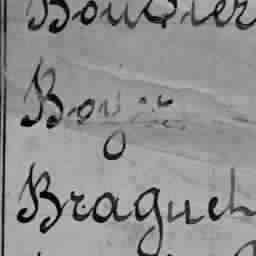 Bouvier
Boyer
Braguel